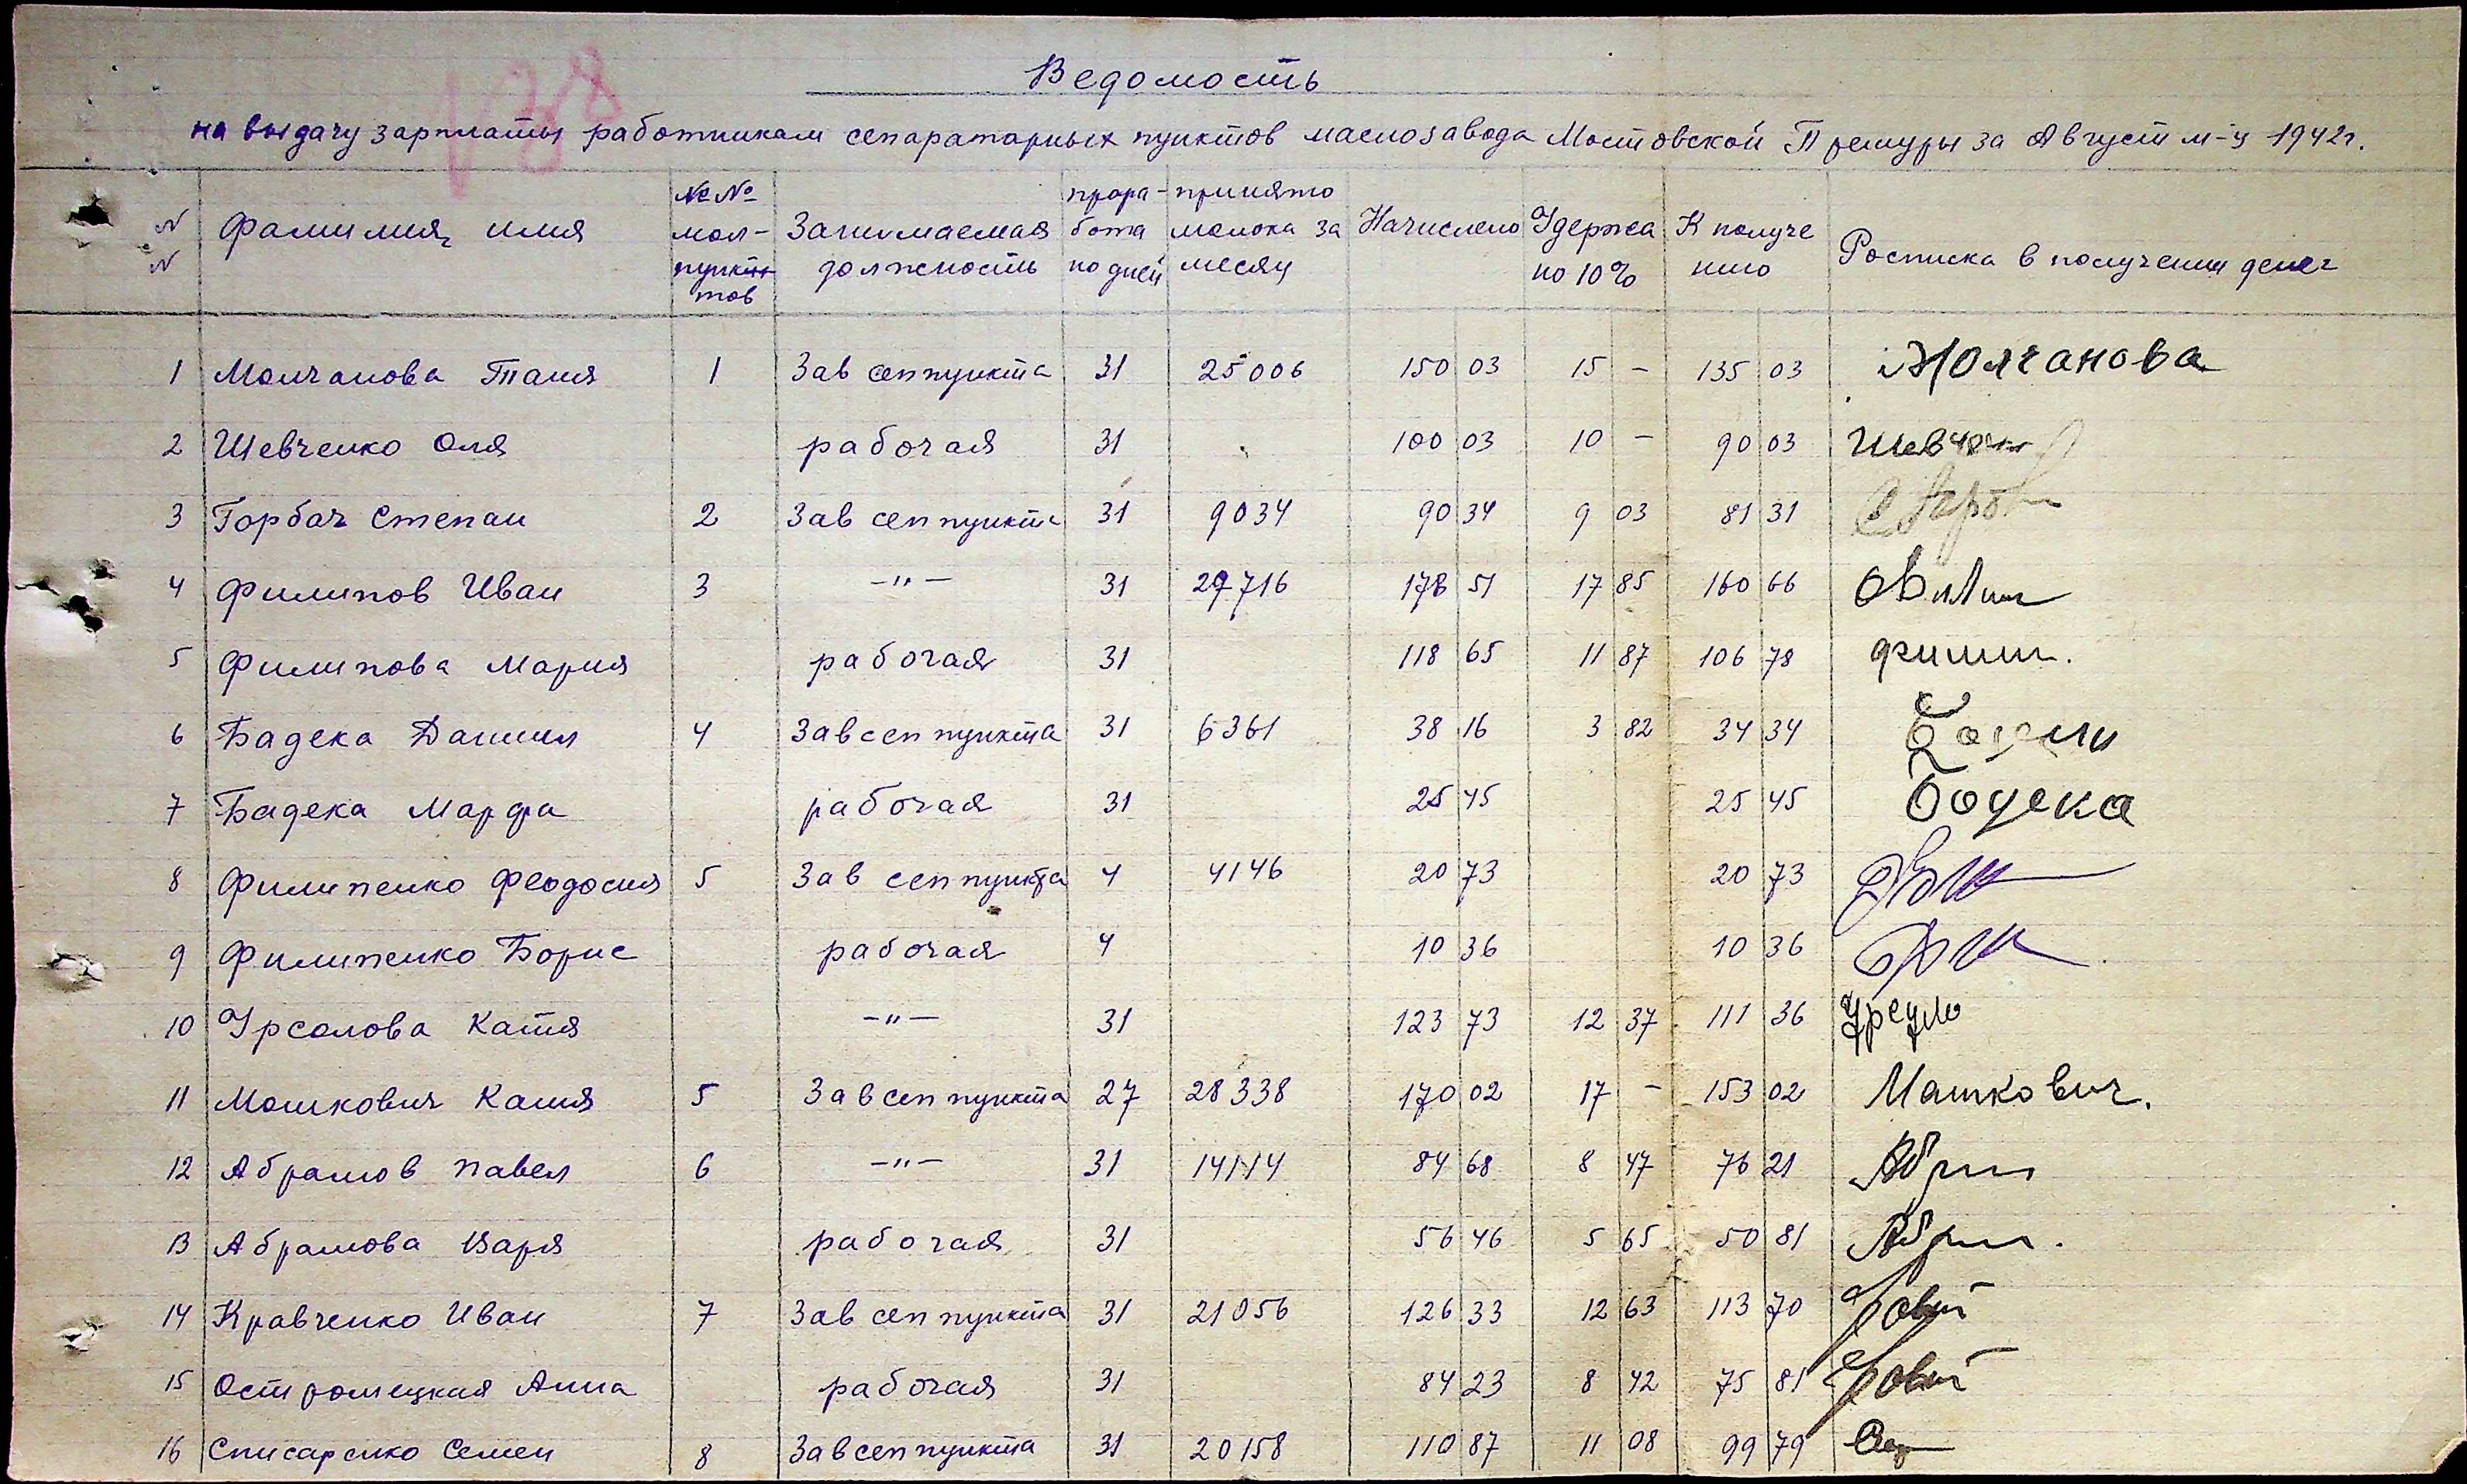 138
Ведомость
на выдачу зарплаты работникам сепараторных пунктов маслозавода Мостовской Премуры за Август м-ц 1942г.
N N фамилия, имя №№ мол-пунктов Занимаемая должность прора-бота но дней принято молока за месяц Начислено Удержа но 10% К получе нию Росписка в получении денег
1 Молчанова Таня 1 Зав сеппункта 31 25006 150 03 15 - 135 03 Молчанова
2 Шевченко Оля рабочая 31 100 03 10 - 90 03 Шевчен
3 Горбач Степан 2 Зав сеппункта 31 9034 90 34 9 03 81 31
4 Филипов Иван 3 -"- 31 29716 178 51 17 85 160 66
5 Филипова Мария рабочая 31 118 65 11 87 106 78 филип.
6 Бадека Даниил 4 Зав сеппункта 31 6361 38 16 3 82 34 34
7 Бадека Марфа рабочая 31 25 45 25 45 Бодека
8 Филипенко Феодосия 5 Зав сеппункта 4 4146 20 73 20 73
9 Филипенко Борис рабочая 4 10 36 10 36
10 Урсолова Катя -"- 31 123 73 12 37 111 36
11 Мошкович Катя 5 Зав сеппункта 27 28338 170 02 17 - 153 02 Машкович.
12 Абрамов Павел 6 -"- 31 14114 84 68 8 47 76 21
13 Абрамова Варя рабочая 31 56 46 5 65 50 81
14 Кравченко Иван 7 Зав сеппункта 31 21056 126 33 12 63 113 70
15 Остромецкая Анна рабочая 31 84 23 8 42 75 81
16 Списаренко Семен 8 Зав сеппункта 31 20158 110 87 11 08 99 79